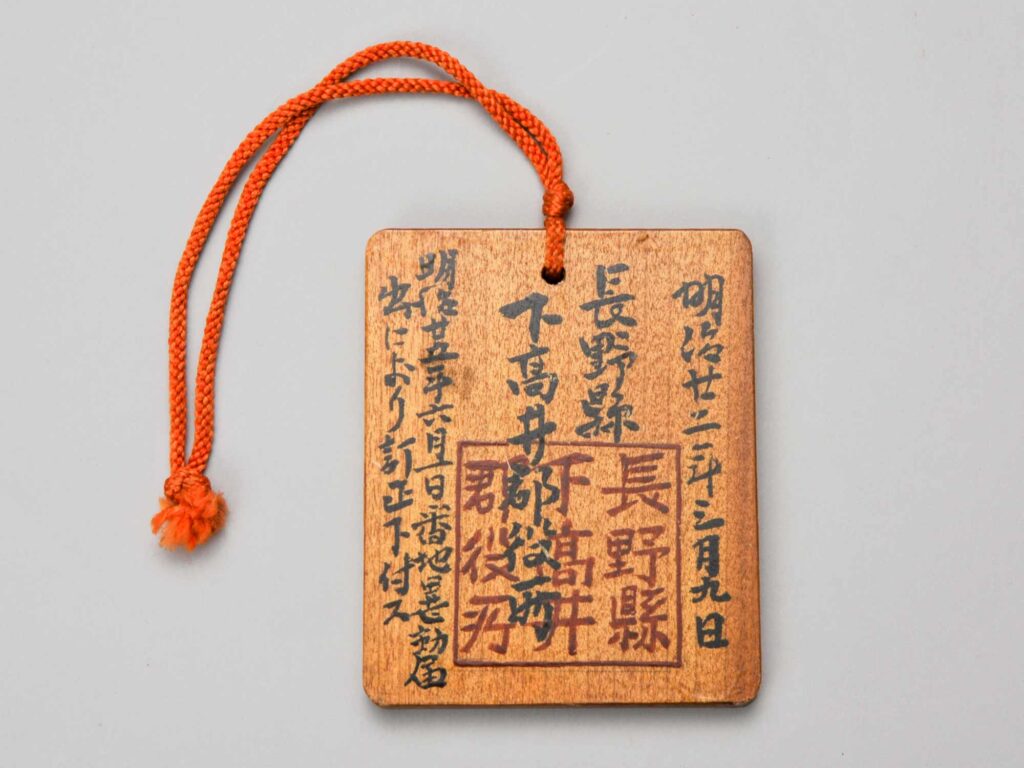 明治廿二年三月九日
長野縣
下高井郡役所
長野縣
下髙井
郡役所
明治廿五年六月一日番地異動届
出により訂正下付ス